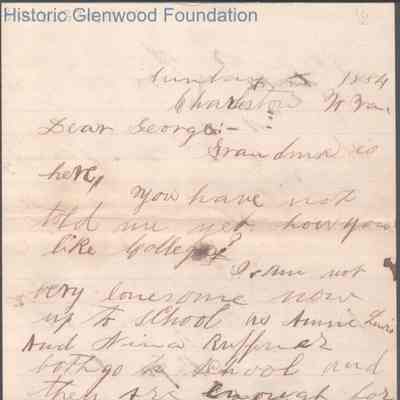 Historic Glenwood Foundation
Sunday 1884
Charleston W Va.
Dear George:-
Grandma is
here,
You have not
told me yet how you
like College?
I am not
very lonesome now
up to school as Annie Lewis
And Nina Ruffner
both go to school and
they are enough for